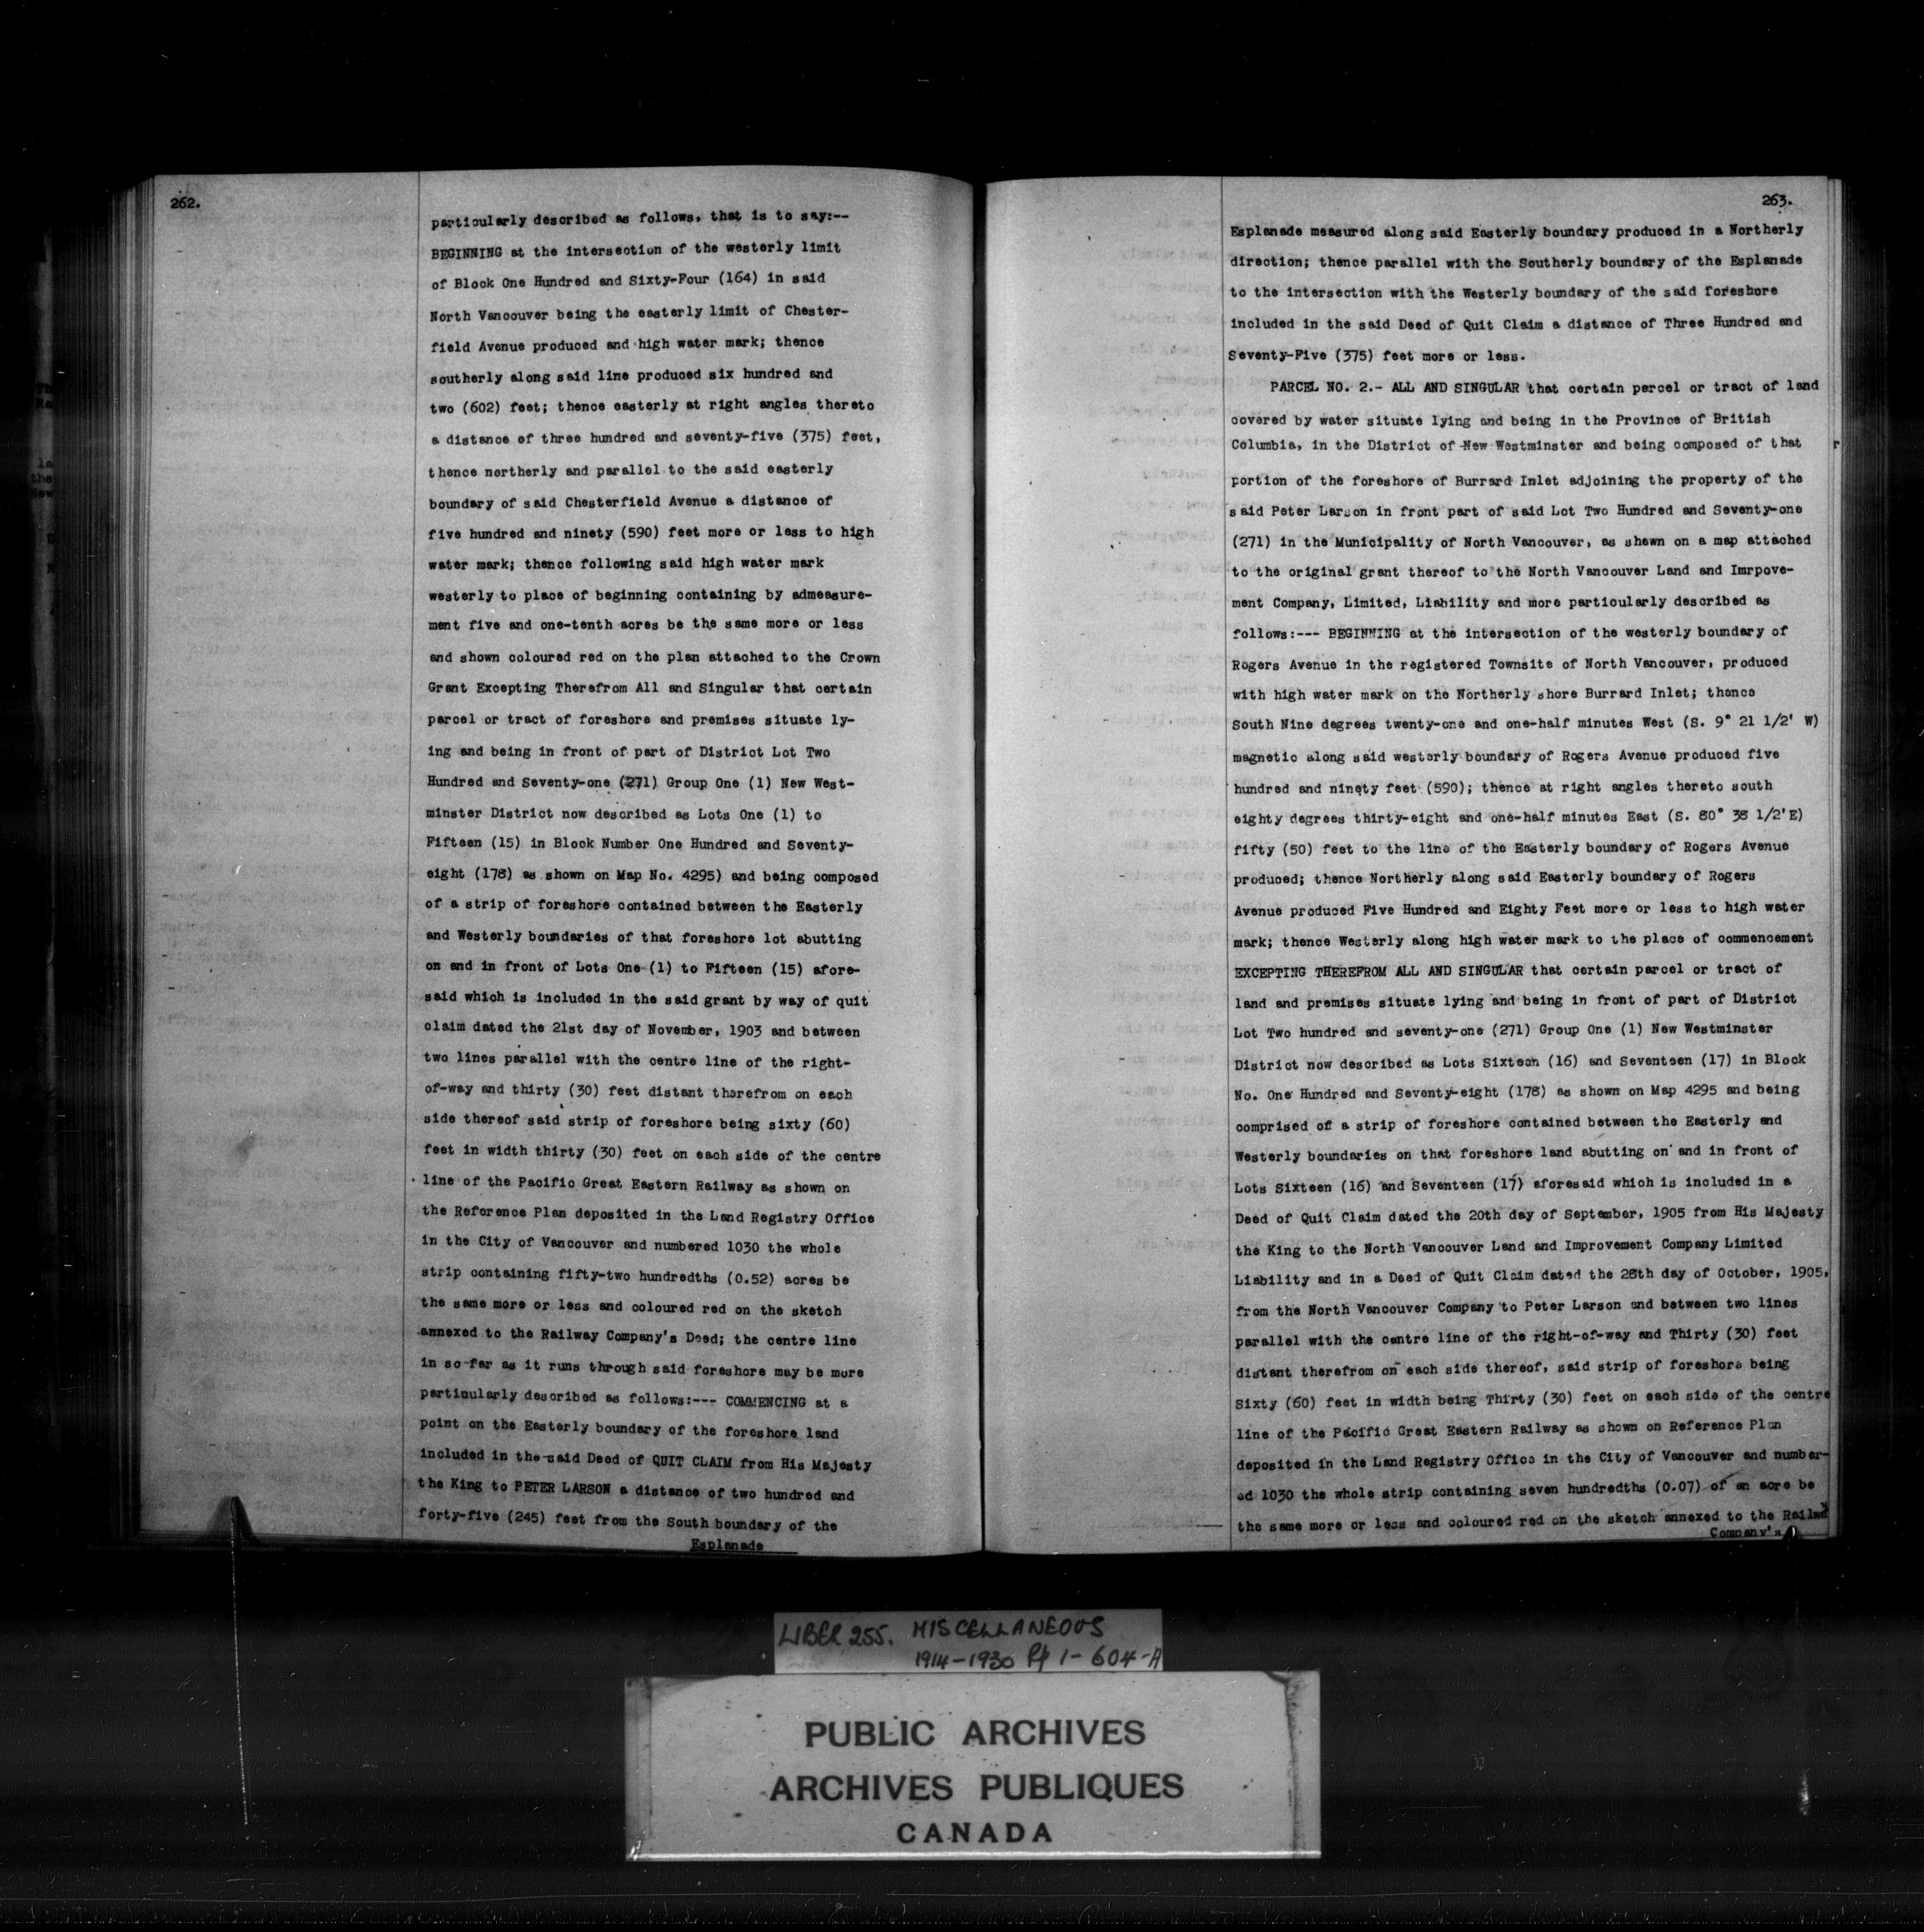 262.
particularly described as follows, that is to say:--
BEGINNING at the intersection of the westerly limit
of Block One Hundred and Sixty-Four (164) in said
North Vancouver being the easterly limit of Chester-
field Avenue produced and high water mark; thence
southerly along said line produced six hundred and
two (602) feet; thence easterly at right angles thereto
a distance of three hundred and seventy-five (375) feet,
thence northerly and parallel to the said easterly
boundary of said Chesterfield Avenue a distance of
five hundred and ninety (590) feet more or less to high
water mark; thence following said high water mark
westerly to place of beginning containing by admeasure-
ment five and one-tenth acres be the same more or less
and shown coloured red on the plan attached to the Crown
Grant Excepting Therefrom All and Singular that certain
parcel or tract of foreshore and premises situate ly-
ing and being in front of part of District Lot Two
Hundred and Seventy-one (271) Group One (1) New West-
minster District now described as Lots One (1) to
Fifteen (15) in Block Number One Hundred and Seventy-
eight (178) as shown on Map No. 4295) and being composed
of a strip of foreshore contained between the Easterly
and Westerly boundaries of that foreshore lot abutting
on and in front of Lots One (1) to Fifteen (15) afore-
said which is included in the said grant by way of quit
claim dated the 21st day of November, 1903 and between
two lines parallel with the centre line of the right-
of-way and thirty (30) feet distant therefrom on each
side thereof said strip of foreshore being sixty (60)
feet in width thirty (30) feet on each side of the centre
line of the Pacific Great Eastern Railway as shown on
the Reference Plan deposited in the Land Registry Office
in the City of Vancouver and numbered 1030 the whole
strip containing fifty-two hundredths (0.52) acres be
the same more or less and coloured red on the sketch
annexed to the Railway Company's Deed; the centre line
in so far as it runs through said foreshore may be more
particularly described as follows:--- COMMENCING at a
point on the Easterly boundary of the foreshore land
included in the said Deed of QUIT CLAIM from His Majesty
the King to PETER LARSON a distance of two hundred and
forty-five (245) feet from the South boundary of the
Esplanade
263.
Esplanade measured along said Easterly boundary produced in a Northerly
direction; thence parallel with the Southerly boundary of the Esplanade
to the intersection with the Westerly boundary of the said foreshore
included in the said Deed of Quit Claim a distance of Three Hundred and
Seventy-Five (375) feet more or less.
PARCEL NO. 2.- ALL AND SINGULAR that certain parcel or tract of land
covered by water situate lying and being in the Province of British
Columbia, in the District of New Westminster and being composed of that
portion of the foreshore of Burrard Inlet adjoining the property of the
said Peter Larson in front part of said Lot Two Hundred and Seventy-one
(271) in the Municipality of North Vancouver, as shewn on a map attached
to the original grant thereof to the North Vancouver Land and Imrpove-
ment Company, Limited, Liability and more particularly described as
follows:--- BEGINNING at the intersection of the westerly boundary of
Rogers Avenue in the registered Townsite of North Vancouver, produced
with high water mark on the Northerly shore Burrard Inlet; thence
South Nine degrees twenty-one and one-half minutes West (S. 9° 21 1/2' W)
magnetic along said westerly boundary of Rogers Avenue produced five
hundred and ninety feet (590); thence at right angles thereto south
eighty degrees thirty-eight and one-half minutes East (S. 80° 38 1/2'E)
fifty (50) feet to the line of the Easterly boundary of Rogers Avenue
produced; thence Northerly along said Easterly boundary of Rogers
Avenue produced Five Hundred and Eighty Feet more or less to high water
mark; thence Westerly along high water mark to the place of commencement
EXCEPTING THEREFROM ALL AND SINGULAR that certain parcel or tract of
land and premises situate lying and being in front of part of District
Lot Two hundred and seventy-one (271) Group One (1) New Westminster
District now described as Lots Sixteen (16) and Seventeen (17) in Block
No. One Hundred and Seventy-eight (178) as shown on Map 4295 and being
comprised of a strip of foreshore contained between the Easterly and
Westerly boundaries on that foreshore land abutting on and in front of
Lots Sixteen (16) and Seventeen (17) aforesaid which is included in a
Deed of Quit Claim dated the 20th day of September, 1905 from His Majesty
the King to the North Vancouver Land and Improvement Company Limited
Liability and in a Deed of Quit Claim dated the 28th day of October, 1905,
from the North Vancouver Company to Peter Larson and between two lines
parallel with the centre line of the right-of-way and Thirty (30) feet
distant therefrom on each side thereof, said strip of foreshore being
Sixty (60) feet in width being Thirty (30) feet on each side of the centre
line of the Pacific Great Eastern Railway as shown on Reference Plan
deposited in the Land Registry Office in the City of Vancouver and number-
ed 1030 the whole strip containing seven hundredths (0.07) of an acre be
the same more or less and coloured red on the sketch annexed to the Railway
Company's
LIBER 255. MISCELLANEOUS
1914-1930 Pp 1-604-A
PUBLIC ARCHIVES
ARCHIVES PUBLIQUES
CANADA